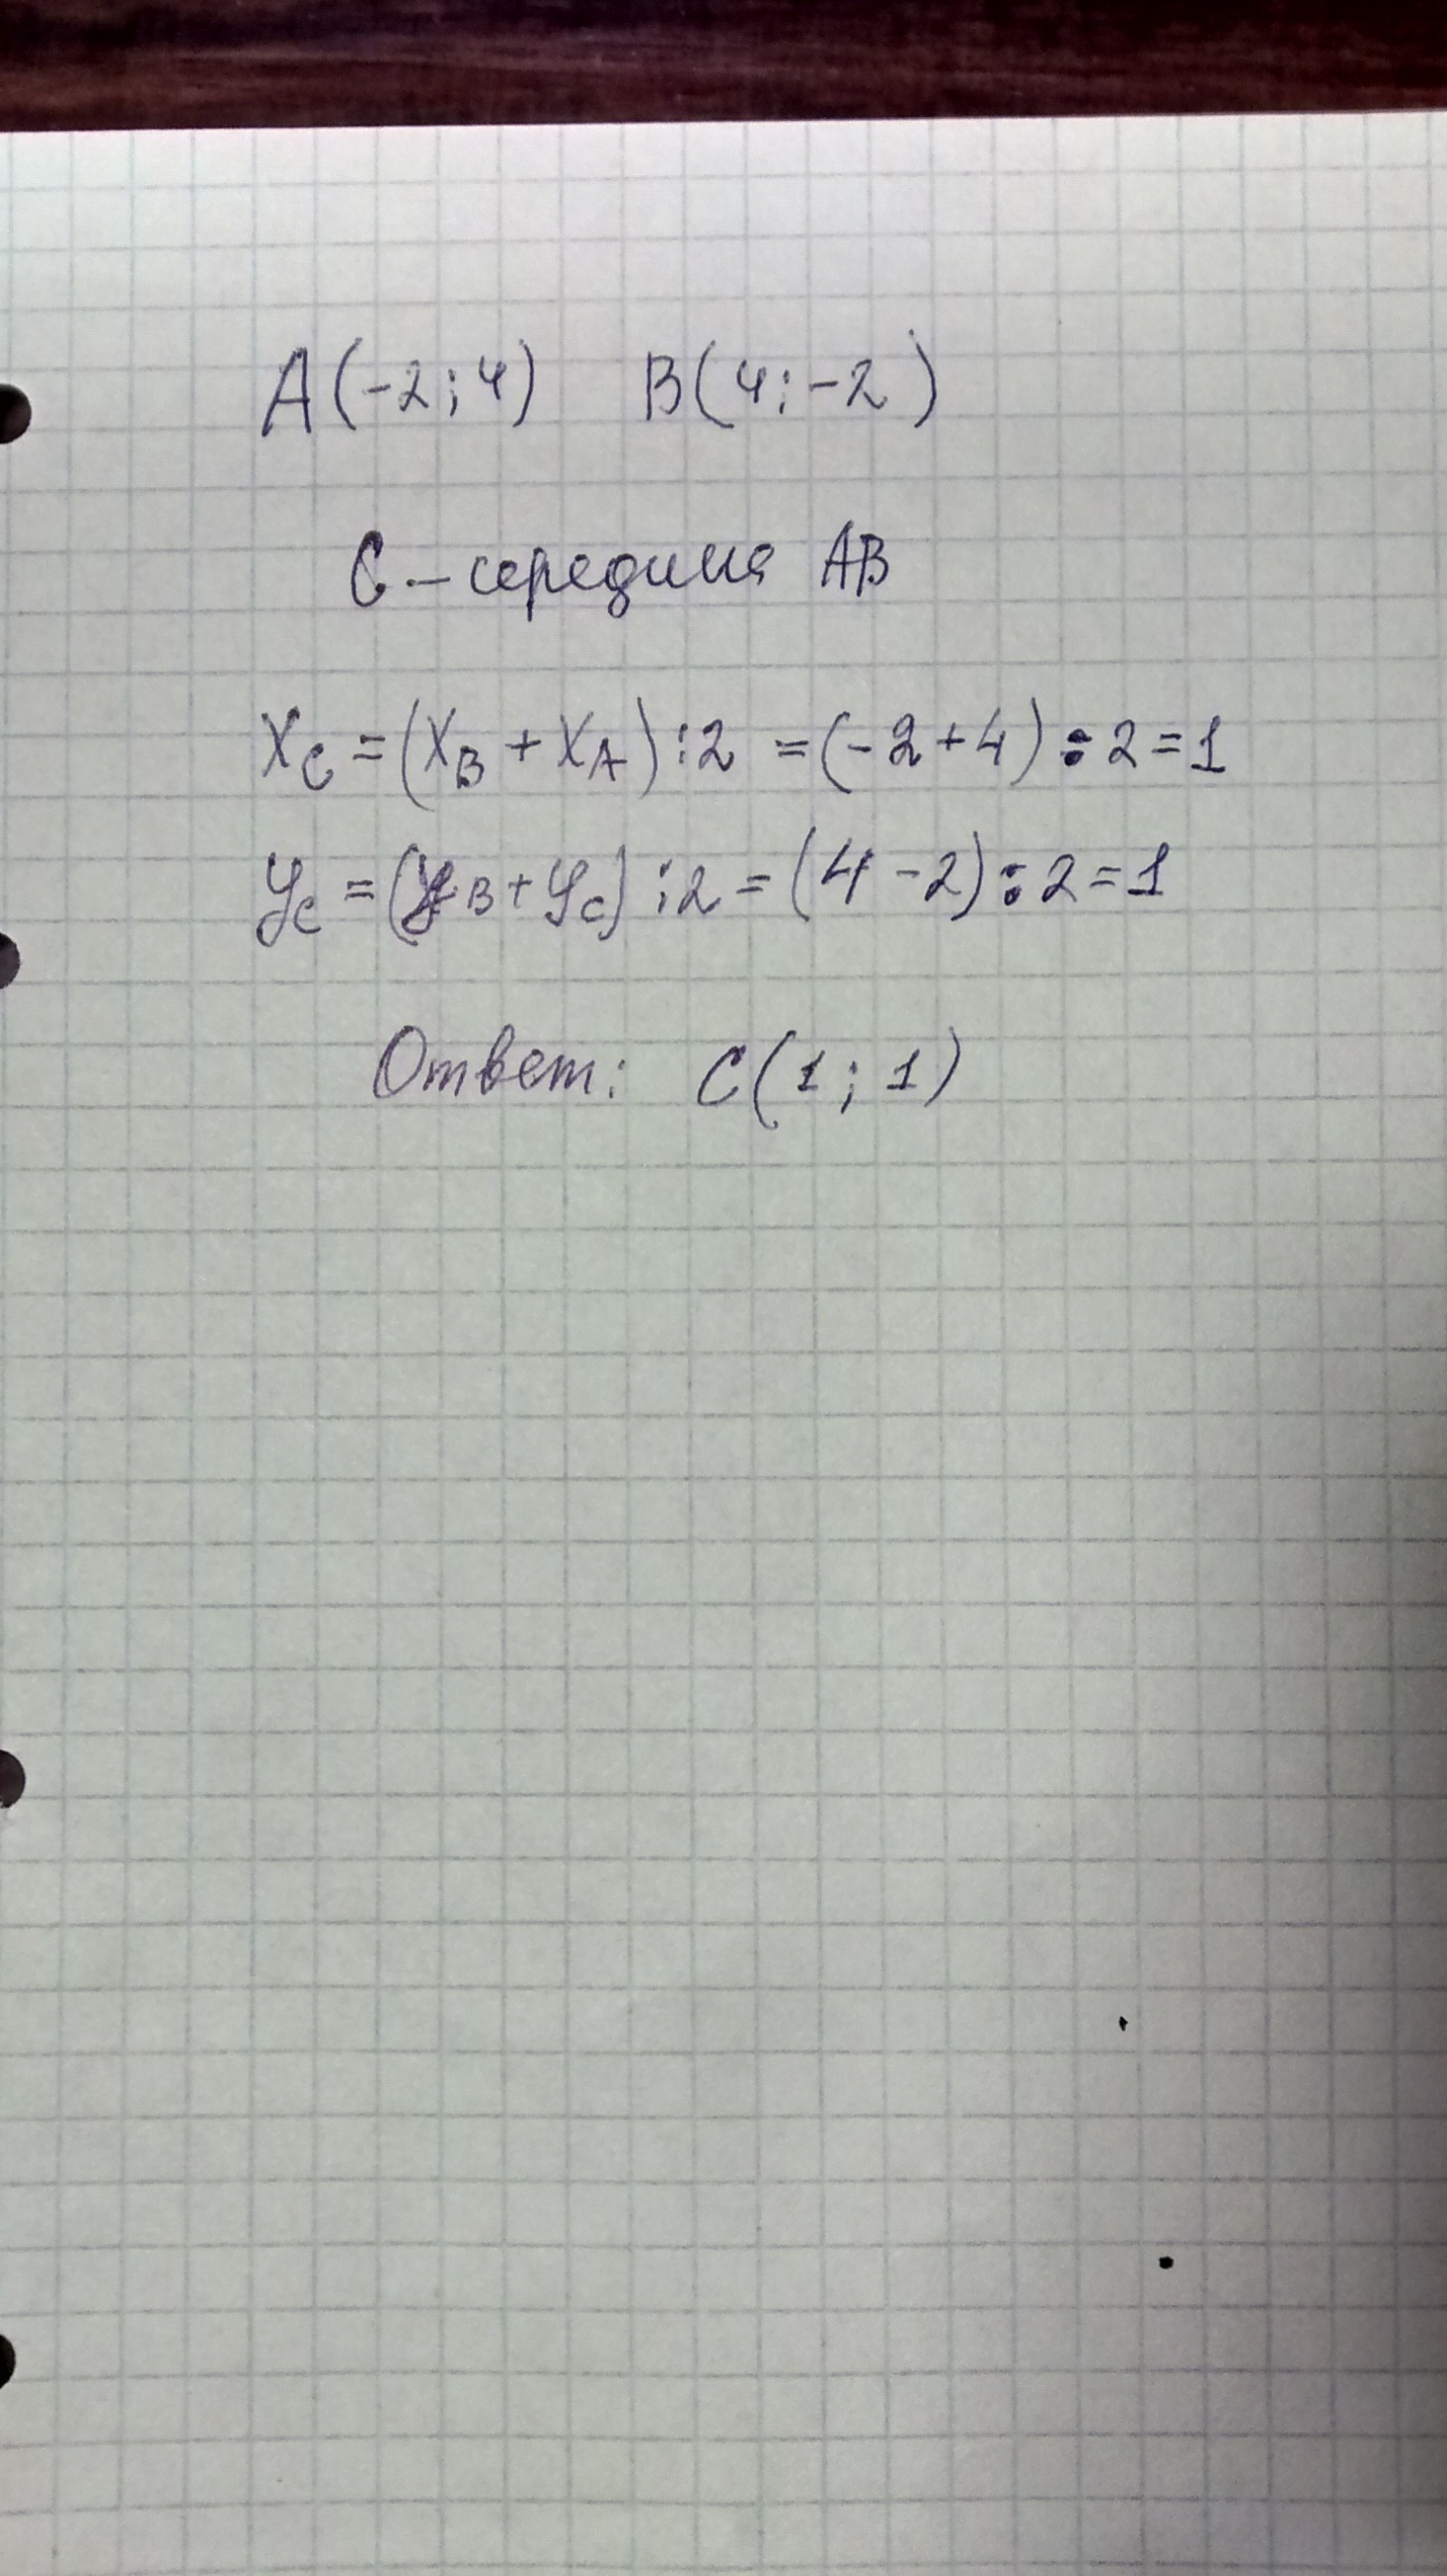 A(-2;4) B(4;-2)
C – середина AB
Xc = (XB + XA) : 2 = (-2+4) : 2 = 1
Yc = (YB + Yc) : 2 = (4-2) : 2 = 1
Ответ: C(1;1)